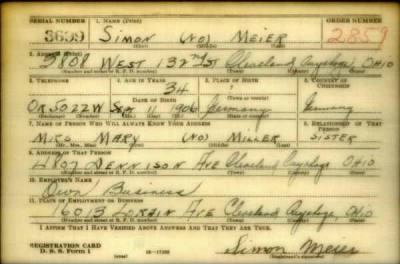 SERIAL NUMBER 1. NAME (Print) ORDER NUMBER
3699 SIMON (NO) MEIER 2859
(First) (Middle) (Last)
2. ADDRESS (Print)
3808 WEST 132nd ST Cleveland Cuyahoga OHIO
(Number and street or R. F. D. number) (Town) (County) (State)
3. TELEPHONE 4. AGE IN YEARS 5. PLACE OF BIRTH 6. COUNTRY OF CITIZENSHIP
34 ?
(Town or county)
OR 5022W DATE OF BIRTH Germany Germany
Sep 11 1906
(Exchange) (Number) (Mo.) (Day) (Yr.) (State or country)
7. NAME OF PERSON WHO WILL ALWAYS KNOW YOUR ADDRESS 8. RELATIONSHIP OF THAT PERSON
MRS MARY (NO) MILLER SISTER
(Mr., Mrs., Miss) (First) (Middle) (Last)
9. ADDRESS OF THAT PERSON
4807 DENNISON AVE Cleveland Cuyahoga OHIO
(Number and street or R. F. D. number) (Town) (County) (State)
10. EMPLOYER'S NAME
Own Business
11. PLACE OF EMPLOYMENT OR BUSINESS
16013 LORAIN AVE Cleveland Cuyahoga, Ohio
(Number and street or R. F. D. number) (Town) (County) (State)
I AFFIRM THAT I HAVE VERIFIED ABOVE ANSWERS AND THAT THEY ARE TRUE.
REGISTRATION CARD
D. S. S. Form 1 Simon Meier
(Registrant's signature)